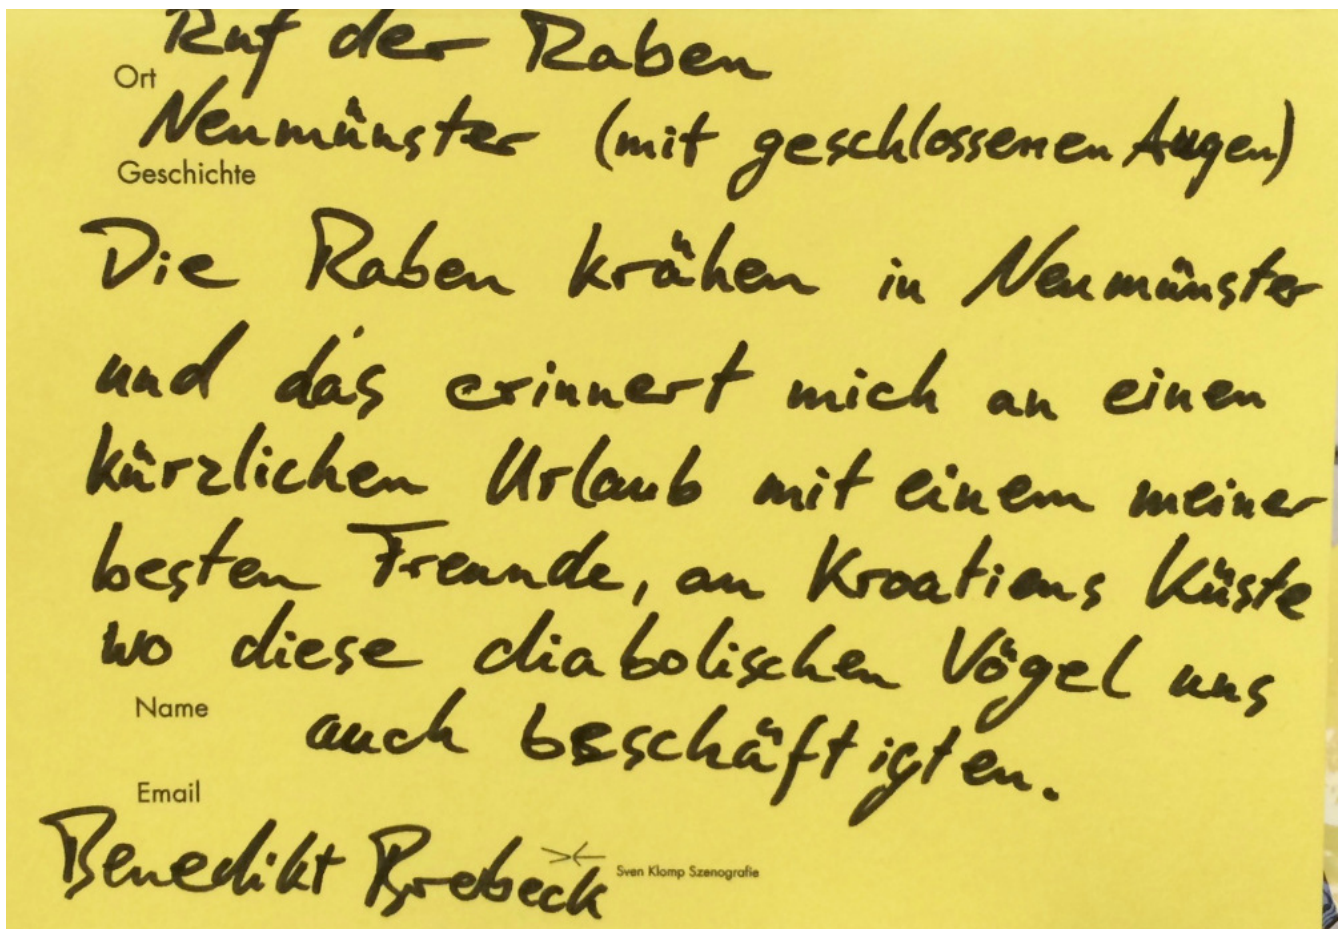 Ruf der Raben
Ort
Neumünster (mit geschlossenen Augen)
Geschichte
Die Raben krähen in Neumünster
und das erinnert mich an einen
kürzlichen Urlaub mit einem meiner
besten Freunde, an Kroatiens Küste
wo diese diabolischen Vögel uns
Name
auch beschäftigten.
Email
Benedikt Brebeck
Sven Klomp Szenografie